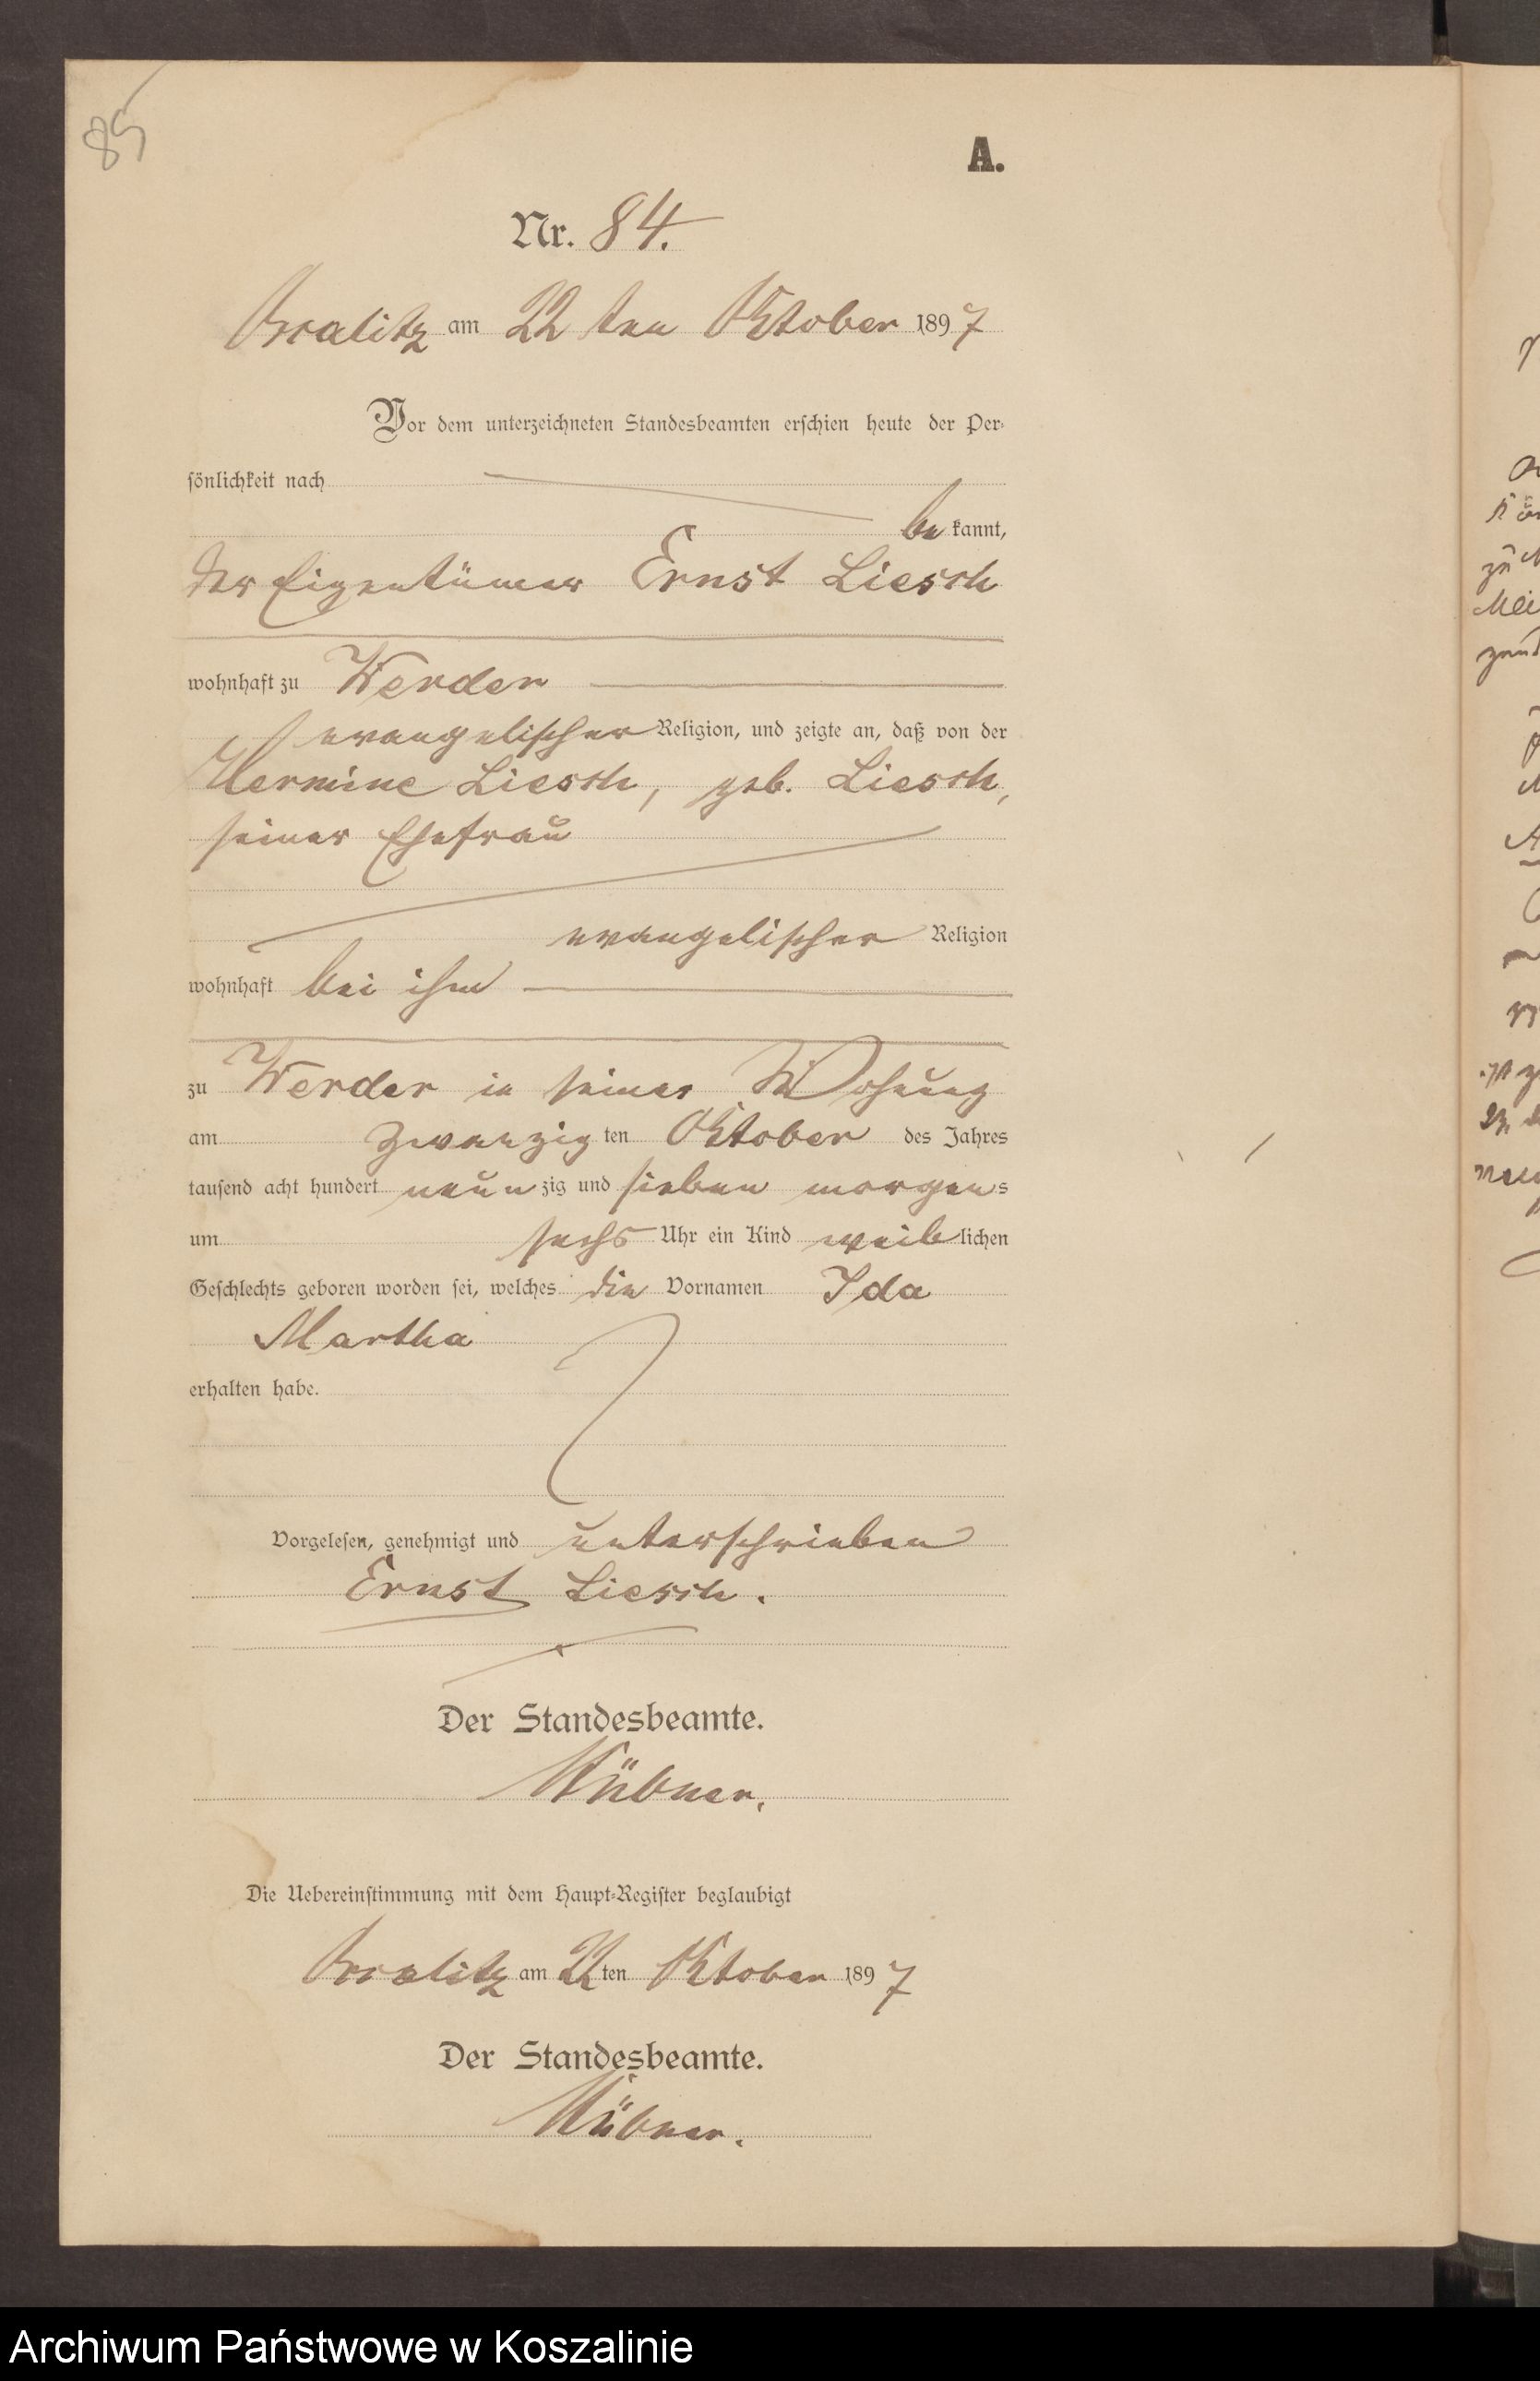 85
A.
Nr. 84.
am 22 ten Oktober 1897
Vor dem unterzeichneten Standesbeamten erschien heute der Per-
sönlichkeit nach
be kannt,
der Eigentümer Ernst Liesch
wohnhaft zu Werder
evangelischer Religion, und zeigte an, daß von der
Hermine Liesch, geb. Liesch,
seiner Ehefrau
evangelischer Religion
wohnhaft bei ihm
zu Werder in seiner Wohnung
am zwanzig ten Oktober des Jahres
tausend acht hundert neun zig und sieben morgens
um sechs Uhr ein Kind weib lichen
Geschlechts geboren worden sei, welches die Vornamen Ida
Martha
erhalten habe.
Vorgelesen, genehmigt und unterschrieben
Ernst Liesch.
Der Standesbeamte.
Hübner.
Die Uebereinstimmung mit dem Haupt-Register beglaubigt
am 22 ten Oktober 1897
Der Standesbeamte.
Hübner.
Archiwum Państwowe w Koszalinie